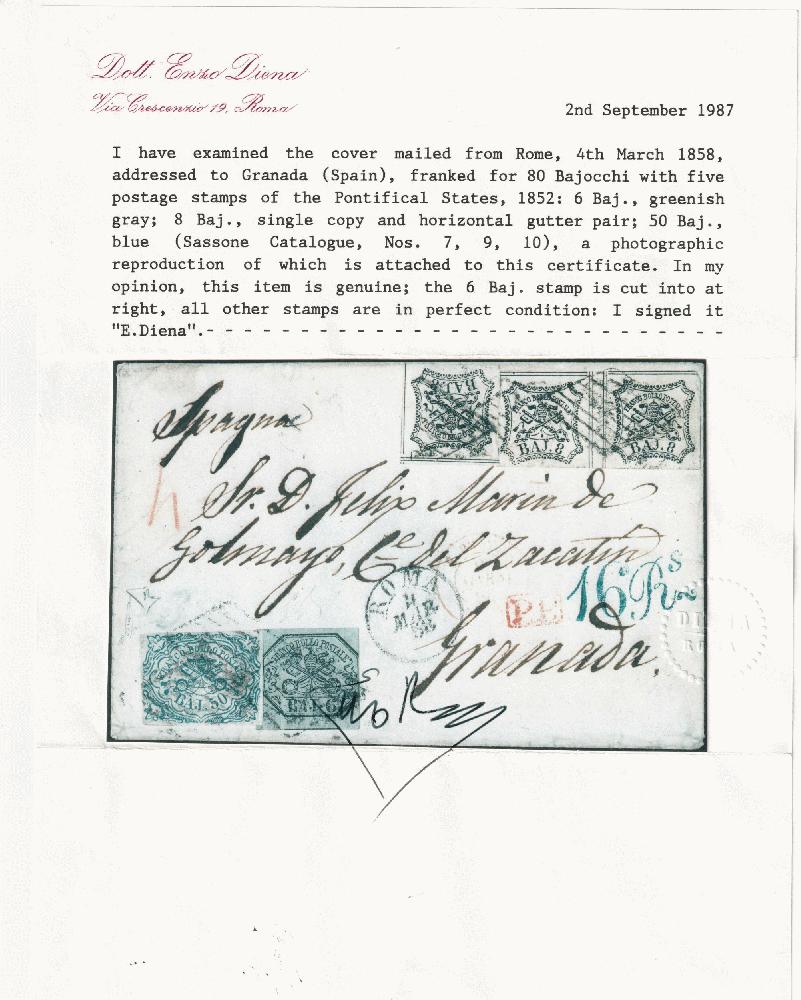 Dott. Enzo Diena
Via Crescenzio 19, Roma
2nd September 1987
I have examined the cover mailed from Rome, 4th March 1858,
addressed to Granada (Spain), franked for 80 Bajocchi with five
postage stamps of the Pontifical States, 1852: 6 Baj., greenish
gray; 8 Baj., single copy and horizontal gutter pair; 50 Baj.,
blue (Sassone Catalogue, Nos. 7, 9, 10), a photographic
reproduction of which is attached to this certificate. In my
opinion, this item is genuine; the 6 Baj. stamp is cut into at
right, all other stamps are in perfect condition: I signed it
"E.Diena".- - - - - - - - - - - - - - - - - - - - - - - - - - - -
BAJ.8
BAJ.8
BAJ.8
Spagna
Sr. D. Felix Marin de
Golmayo, Ce del Zacatin
ROMA
4
MAR
58
P.D.
16 Rs
DIENA
ROMA
Granada.
BAJ.50
FRANCO BOLLO POSTALE
BAJ.6